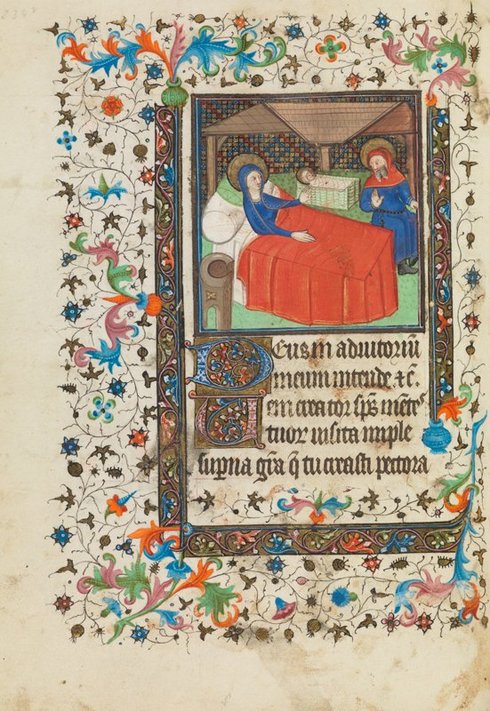 Deus in adiutoriū
meum intende ⁊c̄.
Veni creator sp̄s mētes
tuoꝝ visita imple
sup̄na gr̄a q̄ tu creasti pectora